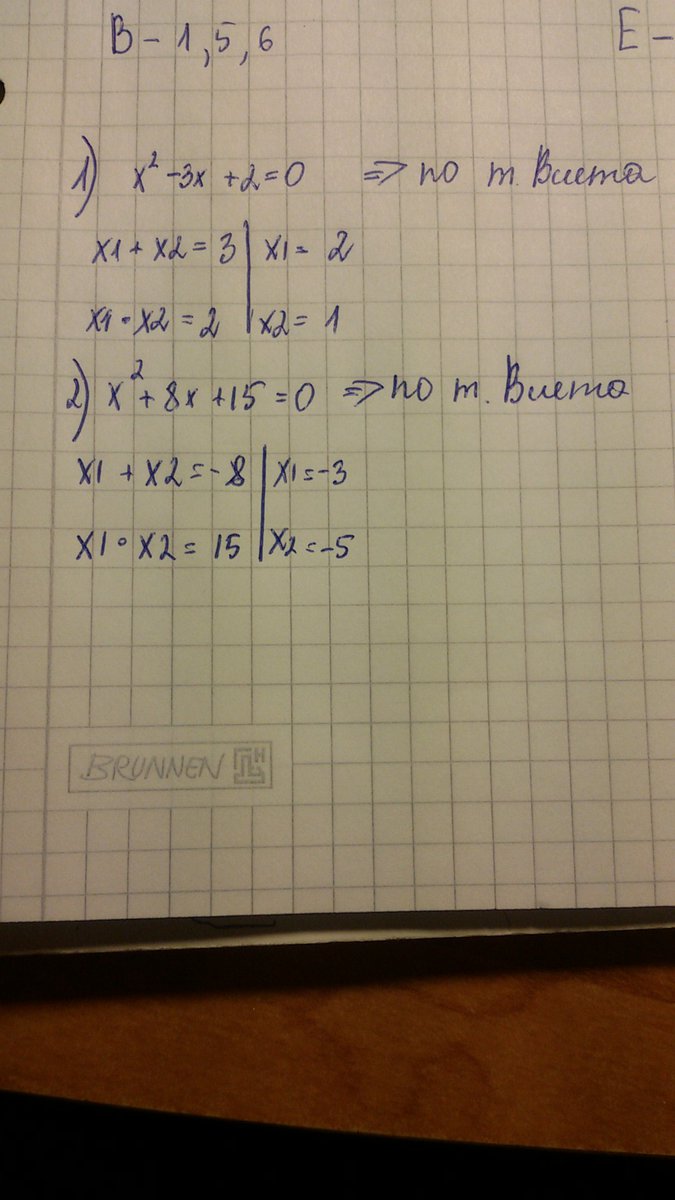 В - 1, 5, 6
Е -
1) x² - 3x + 2 = 0 => по т. Виета
x1 + x2 = 3 | x1 = 2
x1 · x2 = 2 | x2 = 1
2) x² + 8x + 15 = 0 => по т. Виета
x1 + x2 = -8 | x1 = -3
x1 · x2 = 15 | x2 = -5
BRUNNEN